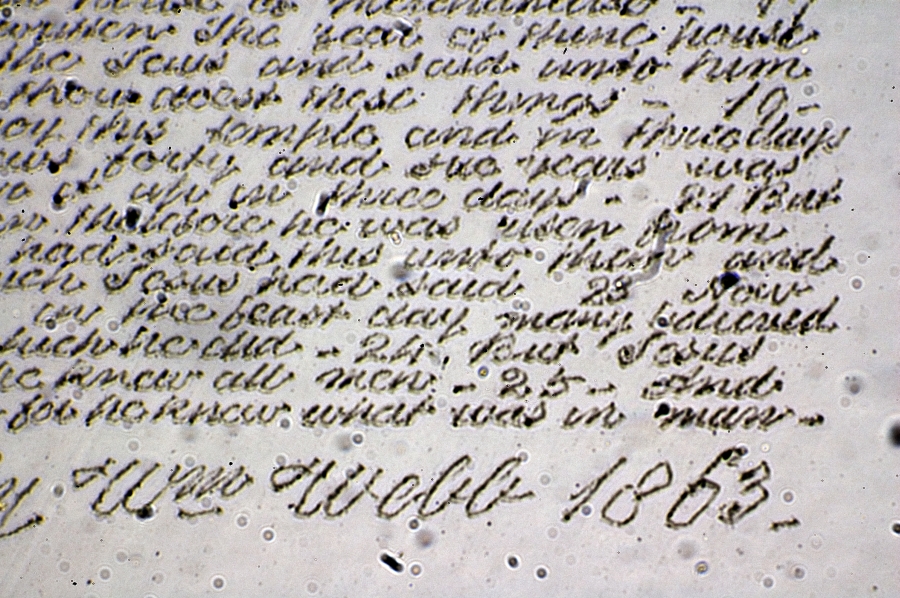 house of merchandise -
written The zeal of thine house
the Jews and said unto him
thou doest these things - 19 -
oy this temple and in three days
ews forty and six years was
up in three days - 21 But
n therefore he was risen from
had said this unto them and
ich Jesus had said 23 Now
in the feast day many believed
hich he did - 24 But Jesus
he knew all men - 25 - And
for he knew what was in man -
y Wm Webb 1863 -